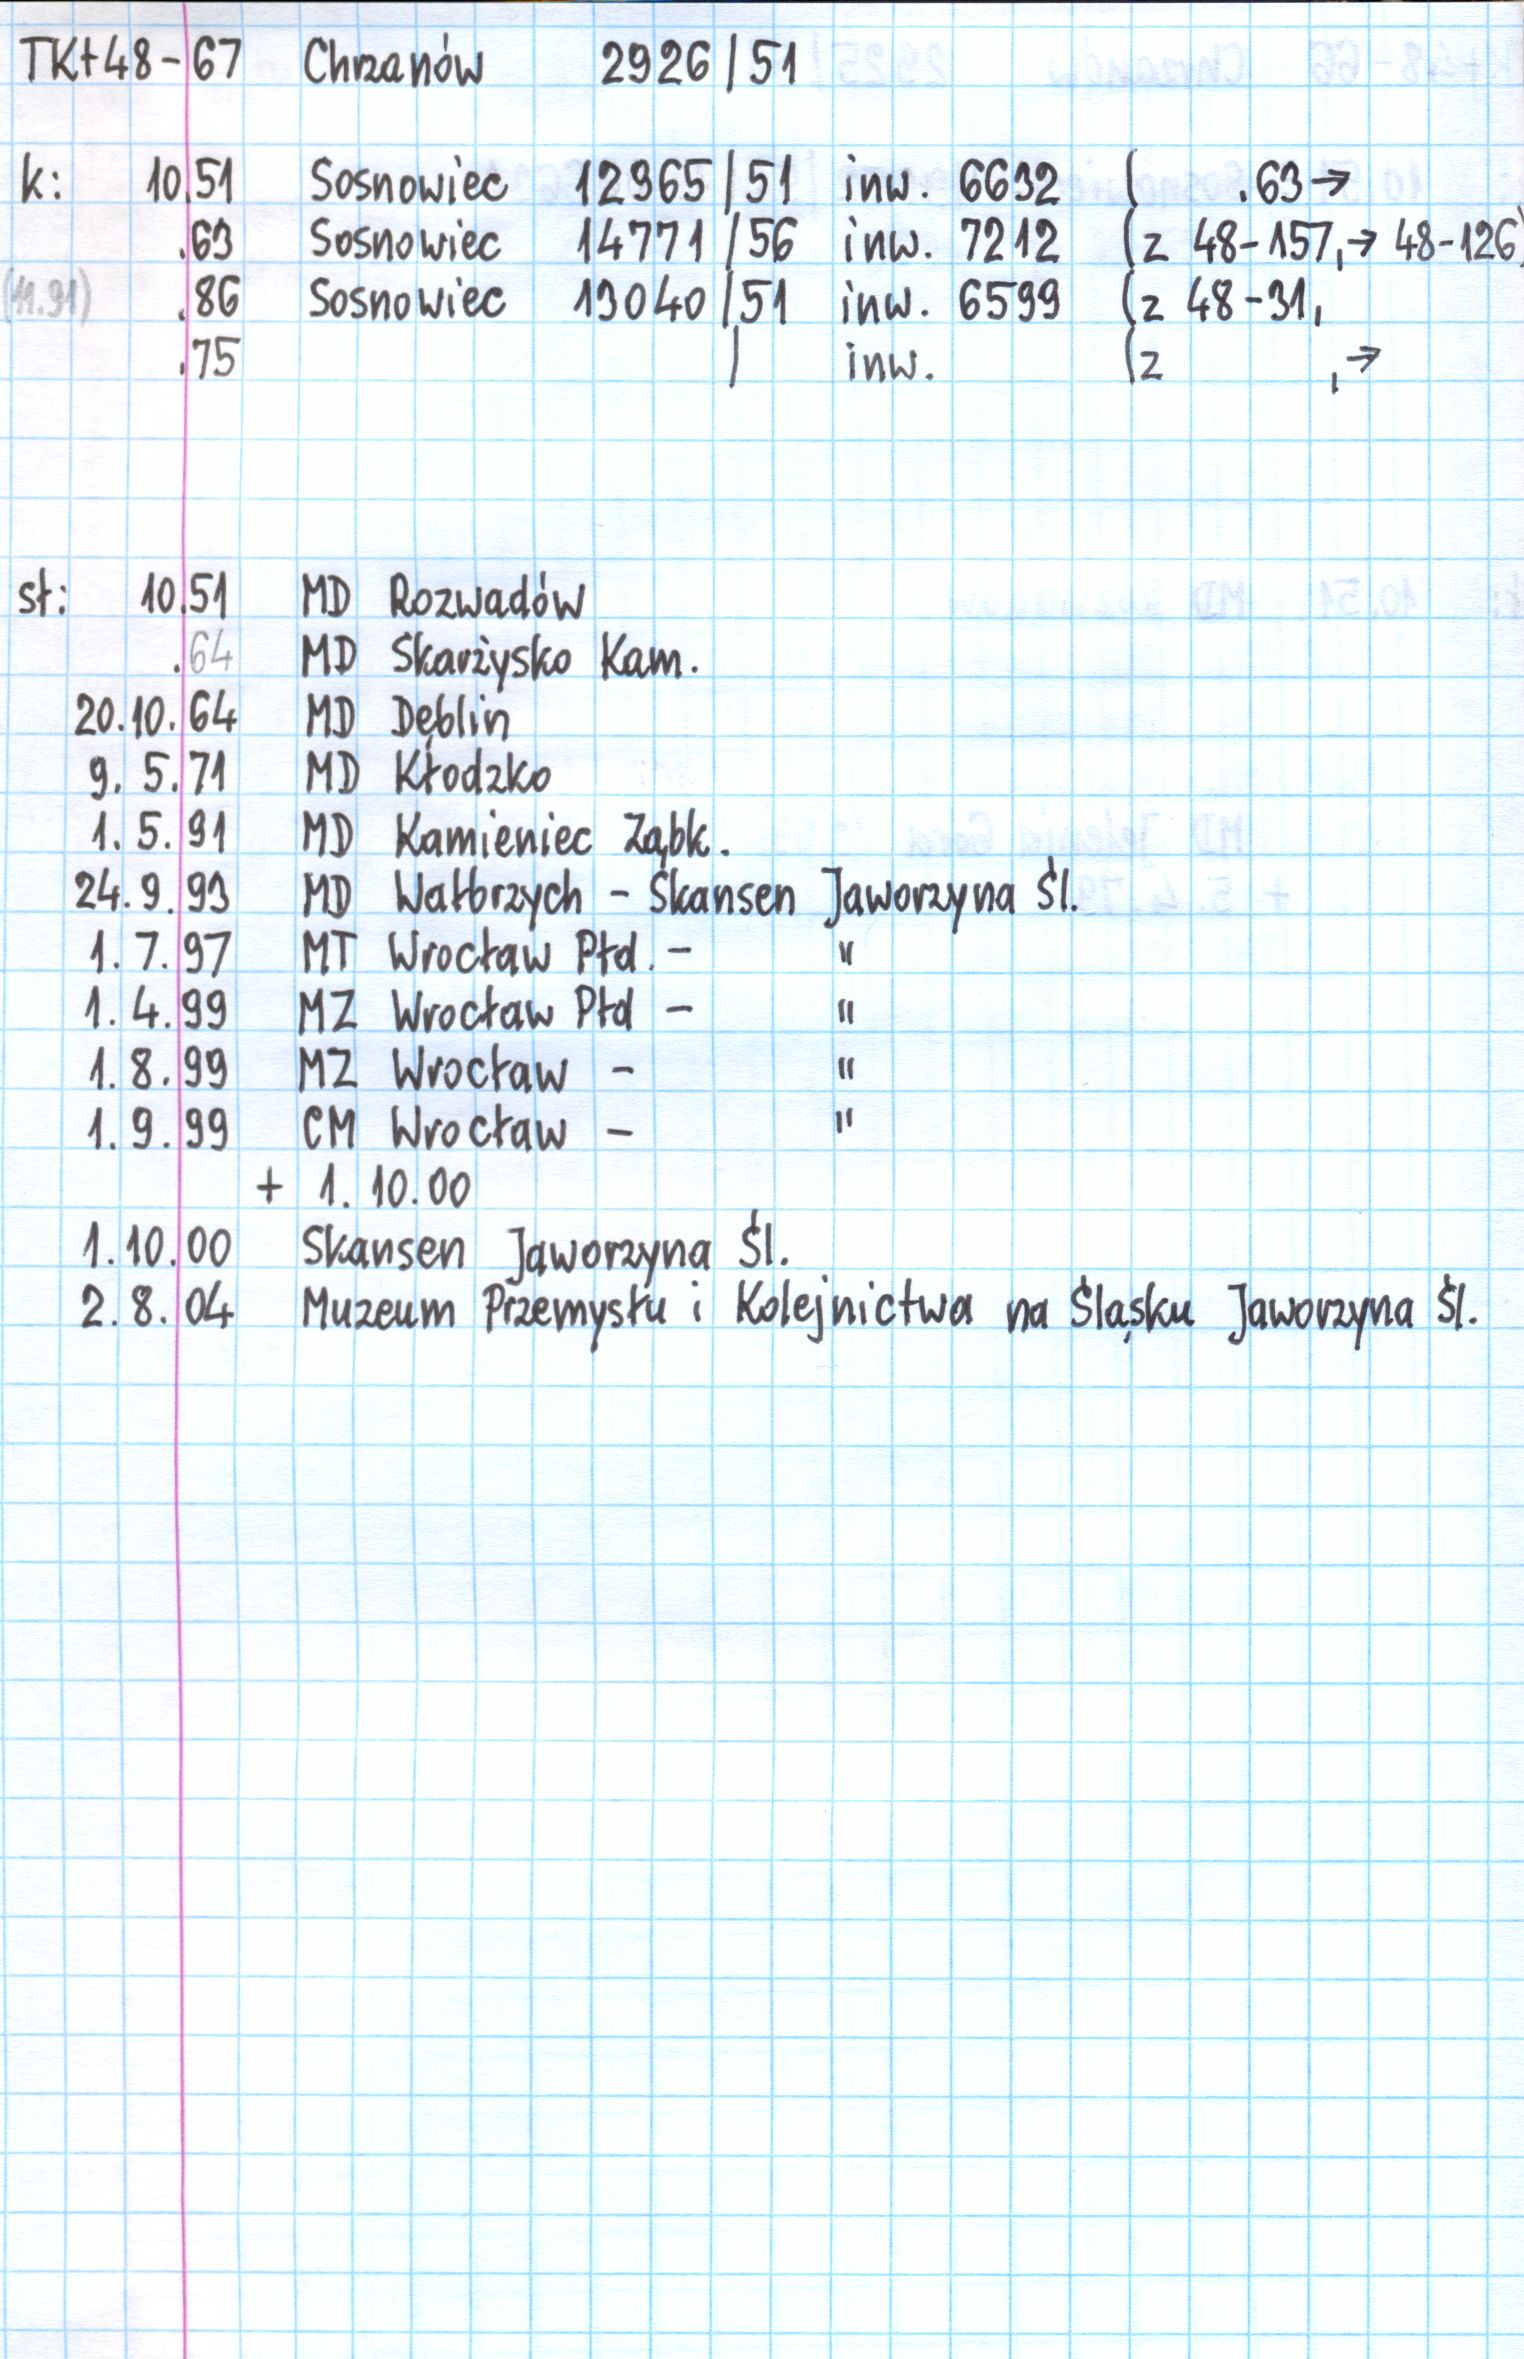 TKt48-67 Chrzanów 2926/51
k: 10.51 Sosnowiec 12965/51 inw. 6632 ( .63→
.63 Sosnowiec 14771/56 inw. 7212 (z 48-157,→ 48-126)
(11.91) .86 Sosnowiec 13040/51 inw. 6599 (z 48-31,
.75 / inw. (z ,→
sł: 10.51 MD Rozwadów
.64 MD Skarżysko Kam.
20.10.64 MD Dęblin
9. 5.71 MD Kłodzko
1. 5.91 MD Kamieniec Ząbk.
24.9.93 MD Wałbrzych - Skansen Jaworzyna Śl.
1. 7.97 MT Wrocław Płd. - "
1. 4.99 MZ Wrocław Płd - "
1. 8.99 MZ Wrocław - "
1. 9.99 CM Wrocław - "
+ 1. 10.00
1.10.00 Skansen Jaworzyna Śl.
2. 8. 04 Muzeum Przemysłu i Kolejnictwa na Śląsku Jaworzyna Śl.